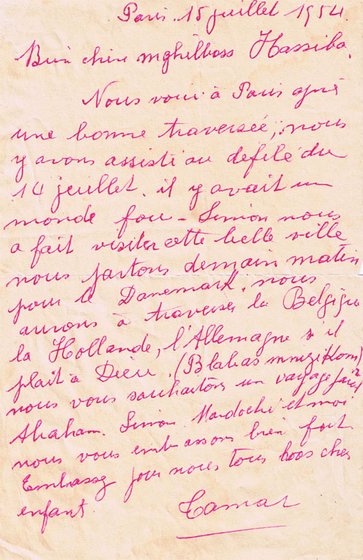 Paris. 15 juillet 1954.
Bien chère mghilboss Hassiba.
Nous voici à Paris après
une bonne traversée, nous
y avons assisté au defilé du
14 juillet. il y avait un
monde fou - Simon nous
a fait visiter cette belle ville
nous partons demain matin
pour le Danemark. nous
aurons à traverser la Belgique
la Hollande, l'Allemagne s'il
plait à Dieu.
nous vous souhaitons un voyage
Abraham. Simon Mardochée et moi
nous vous embrassons bien fort
Embassez pour nous tous vos chers
enfant.
Tamar